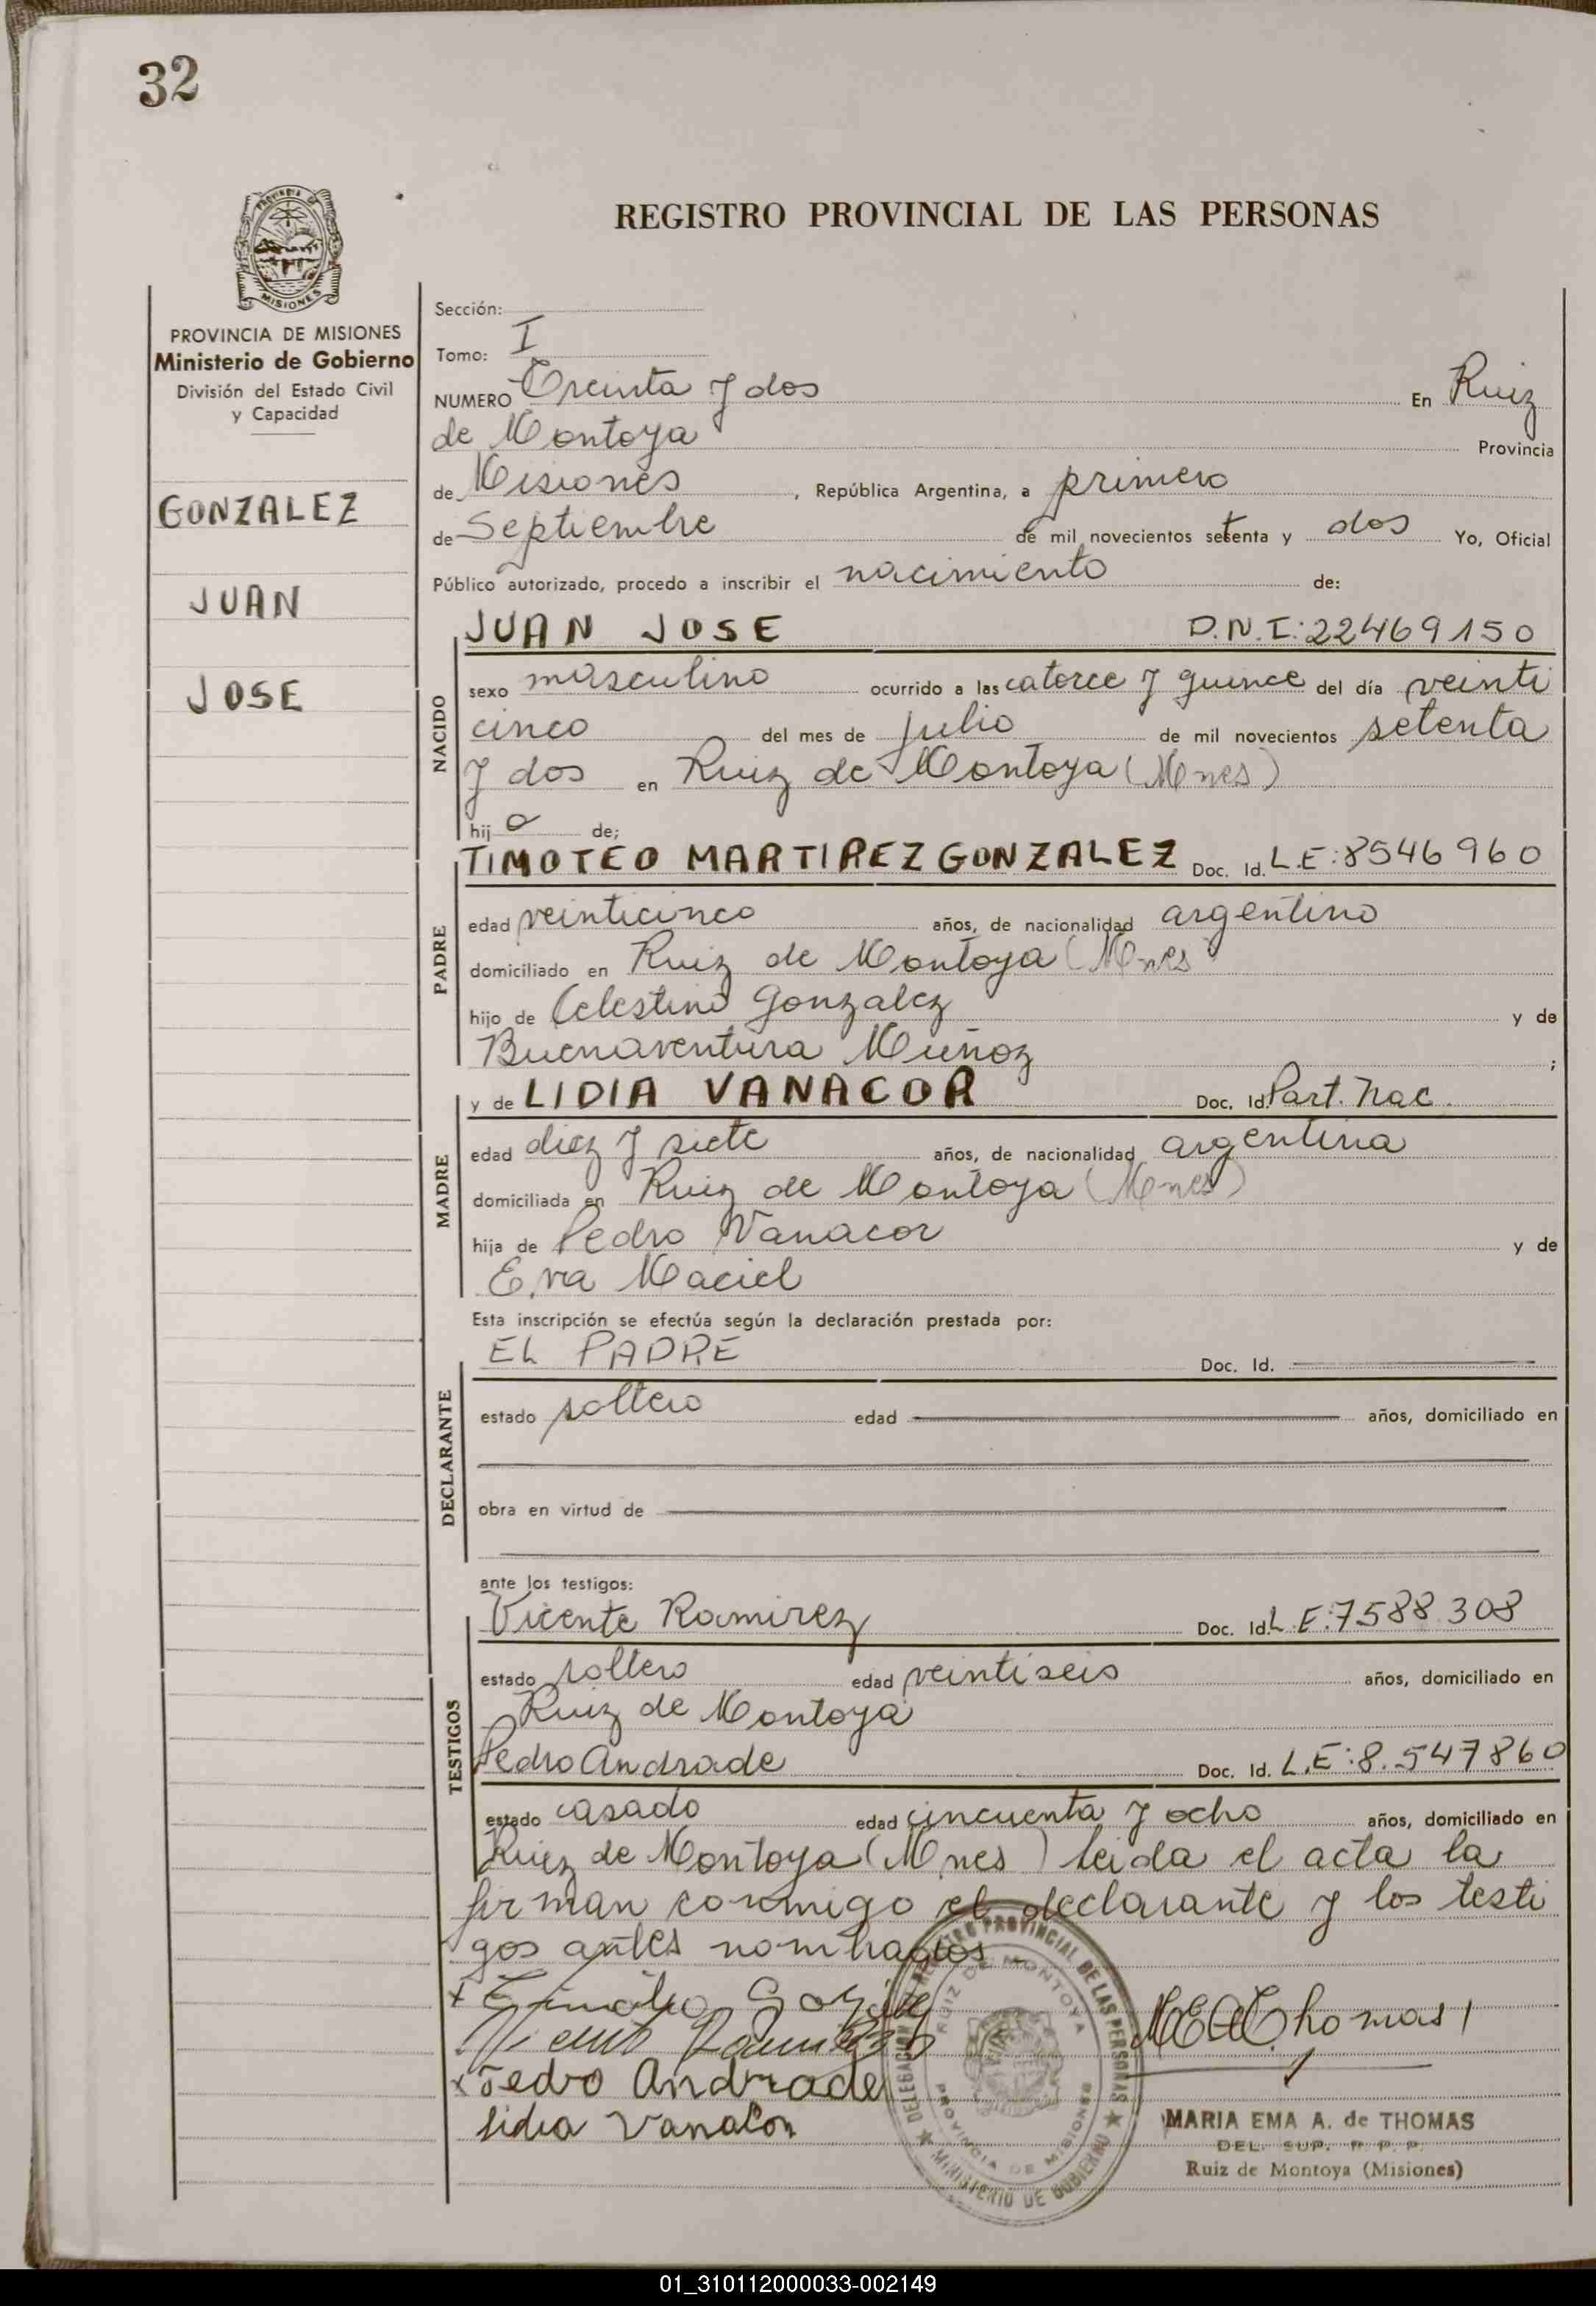 32
REGISTRO PROVINCIAL DE LAS PERSONAS
PROVINCIA DE MISIONES
Ministerio de Gobierno
División del Estado Civil
y Capacidad
GONZALEZ
JUAN
JOSE
Sección:
Tomo: I
NUMERO Treinta y dos En Ruiz
de Montoya Provincia
de Misiones, República Argentina, a primero
de Septiembre de mil novecientos setenta y dos Yo, Oficial
Público autorizado, procedo a inscribir el nacimiento de:
NACIDO
JUAN JOSE D.N.I:22469150
sexo masculino ocurrido a las catorce y quince del día veinti
cinco del mes de julio de mil novecientos setenta
y dos en Ruiz de Montoya (Mnes)
hijo de;
PADRE
TIMOTEO MARTIREZ GONZALEZ Doc. Id. L.E:8546960
edad veinticinco años, de nacionalidad argentino
domiciliado en Ruiz de Montoya (Mnes
hijo de Celestino Gonzalez y de
Buenaventura Muñoz ;
MADRE
y de LIDIA VANACOR Doc. Id. Part. Nac.
edad diez y siete años, de nacionalidad argentina
domiciliada en Ruiz de Montoya (Mnes)
hija de Pedro Vanacor y de
Eva Maciel
Esta inscripción se efectúa según la declaración prestada por:
DECLARANTE
EL PADRE Doc. Id.
estado soltero edad años, domiciliado en
obra en virtud de
ante los testigos:
TESTIGOS
Vicente Ramirez Doc. Id. L.E:7588308
estado soltero edad veintiseis años, domiciliado en
Ruiz de Montoya
Pedro Andrade Doc. Id. L.E:8.547860
estado casado edad cincuenta y ocho años, domiciliado en
Ruiz de Montoya (Mnes) leida el acta la
firman conmigo el declarante y los testi
gos antes nombrados
Vicente Ramirez
Pedro Andrade
Lidia Vanacor
MEAThomas
DELEGACION REGISTRO PROVINCIAL DE LAS PERSONAS
RUIZ DE MONTOYA
PROVINCIA DE MISIONES
MINISTERIO DE GOBIERNO
MARIA EMA A. de THOMAS
DEL. SUP. R. P. P.
Ruiz de Montoya (Misiones)
01_310112000033-002149